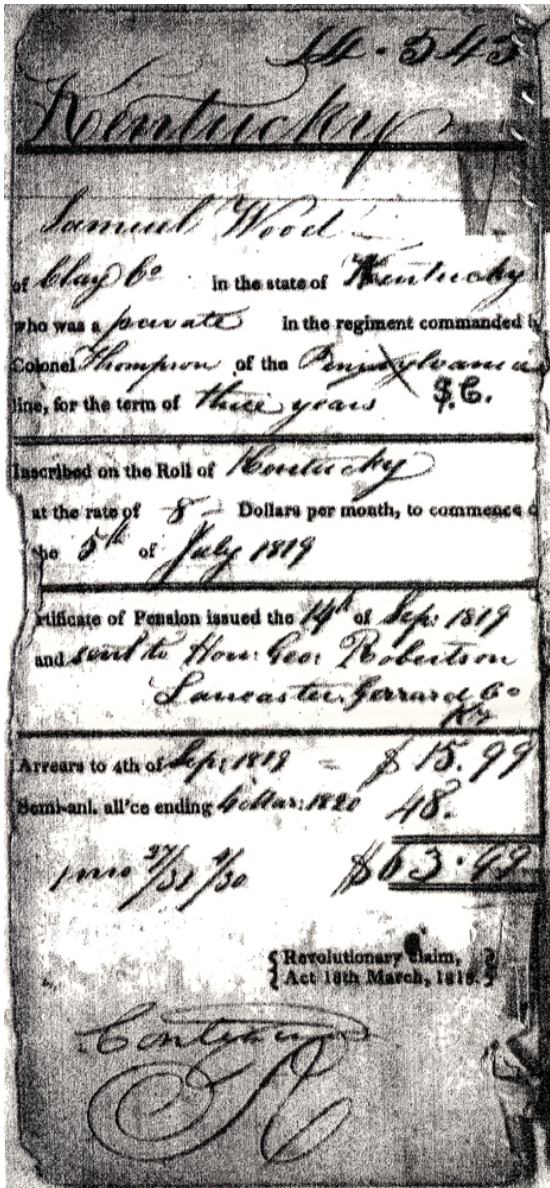 14.543
Kentucky
Samuel Wood
of Clay Co in the state of Kentucky
who was a private in the regiment commanded b
Colonel Thompson of the Pennsylvania
line, for the term of three years S.C.
Inscribed on the Roll of Kentucky
at the rate of 8 Dollars per month, to commence o
the 5th of July 1819
rtificate of Pension issued the 14th of Sep: 1819
and sent to Hon: Geo: Robertson
Lancaster Gerrard Co
Ky
Arrears to 4th of Sep: 1819 = $15.99
Semi-anl. all'ce ending 4 Mar: 1820 48.
1 mo 27/31 4/30 $63.99
{ Revolutionary Claim, }
{ Act 18th March, 1818. }